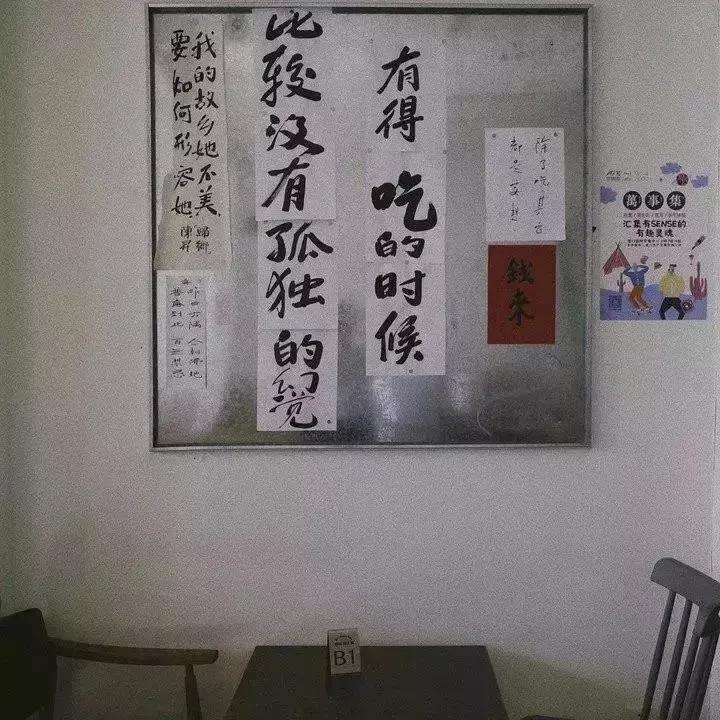 有得
吃的时候
比较没有孤独的幻觉
除了吃其它
都是妄想
錢来
我的故乡她不美
要如何形容她
歸鄉
陳昇
百无禁忌
萬事集
汇集有SENSE的
有趣灵魂
B1